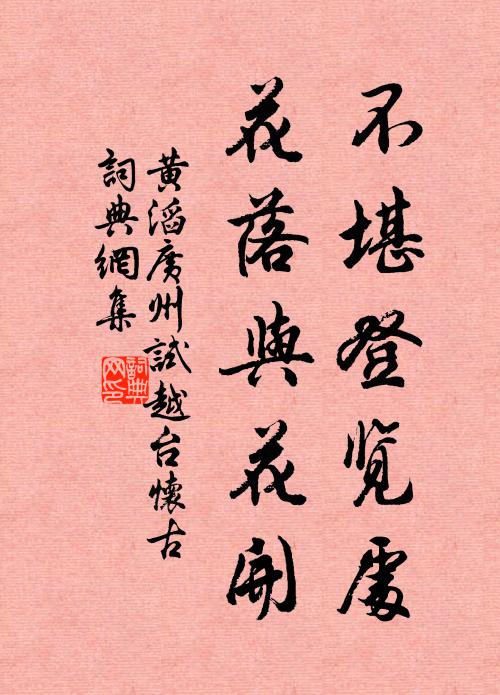 不堪登览處
花落與花開
黄滔廣州試越台懷古
詞典網集
詞典
网印